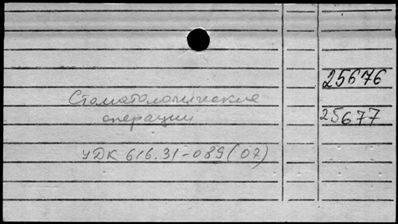 Стоматологические
операции
УДК 616.31-089(07)
25676
25677